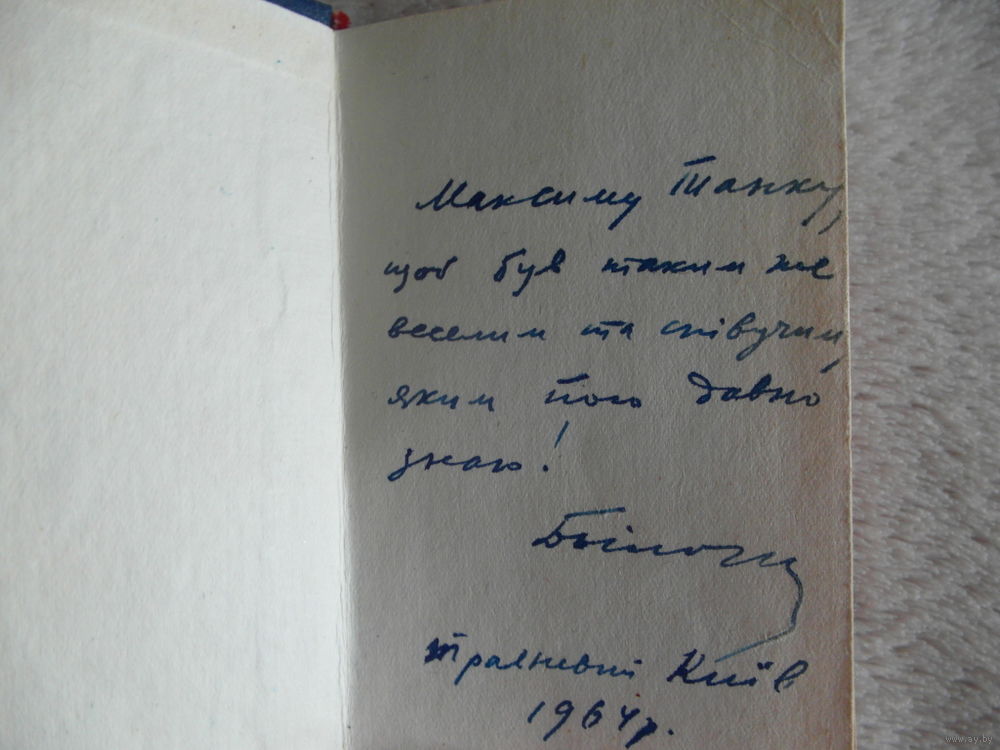 Максиму Танку,
щоб був таким же
веселим та співучим,
яким його давно
знаю!
травневий Київ
1964 р.
www.ay.by